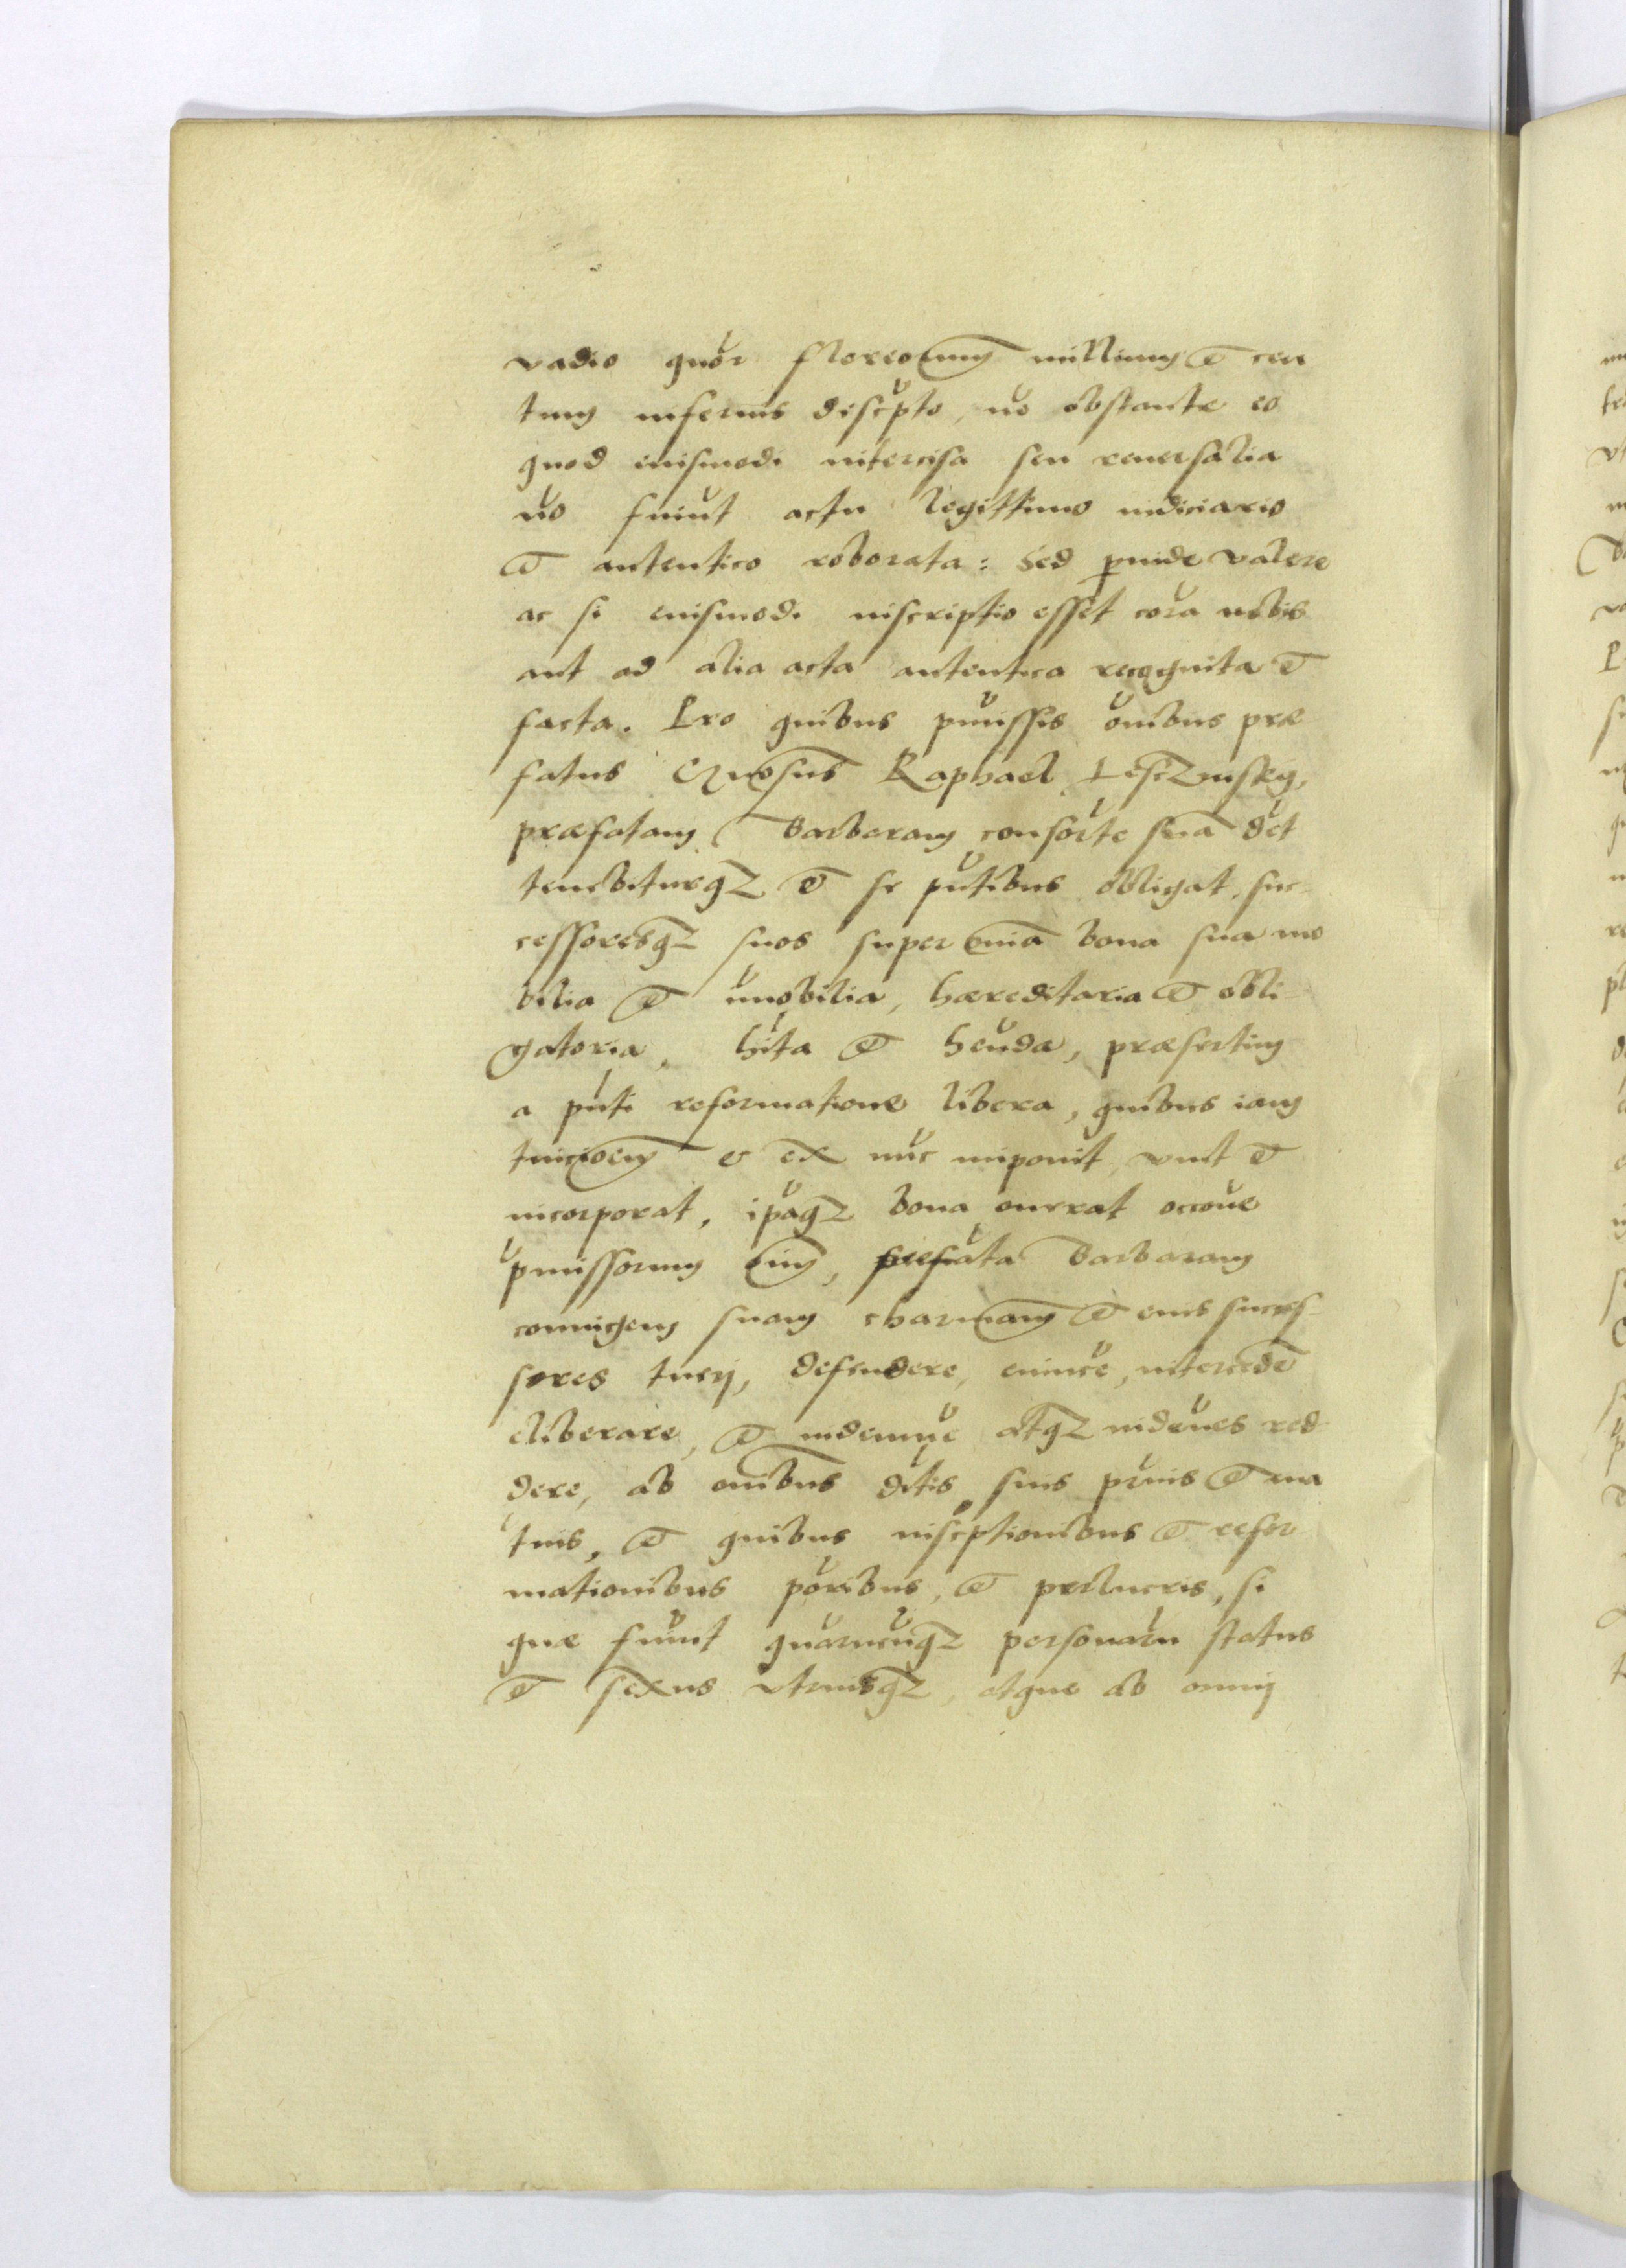 vadio quor florenorum millium et cen
tum inferius descpto, no obstante eo
quod eiusmodi intercisa seu reuersalia
no fuiut actu legittimo iudiciario
et autentico roborata: Sed perinde valere
ac si eiusmodi inscriptio esset cora nobis
aut ad alia acta autentica recognita et
facta. Pro quibus pmissis omibus præ
fatus Gnosus Raphael Lesczinsky,
præfatam Barbaram consorte sua det
tenebiturqz et se pntibus obligat, suc-
cessoresqz suos super omia bona sua mo
bilia et imobilia, hæreditaria et obli-
gatoria, hita et henda, præsertim
a pnti reformatione libera, quibus iam
tuicioem et ex nuc imponit, vnit et
incorporat, ipaqz bona onerat occoue
pmissorum oim, prefata Barbaram
coniugem suam charissimam et eius succes-
sores tueri, defendere, euince, intercede
eliberare, et indemne atqz indenes red
dere, ab omibus ditis suis prnis et ma
tnis, et quibus inscptionibus et refor
mationibus poribus, et perlucris, si
quæ fuiut quarucuqz personaru status
et sexus vtriusqz, atque ab omnij